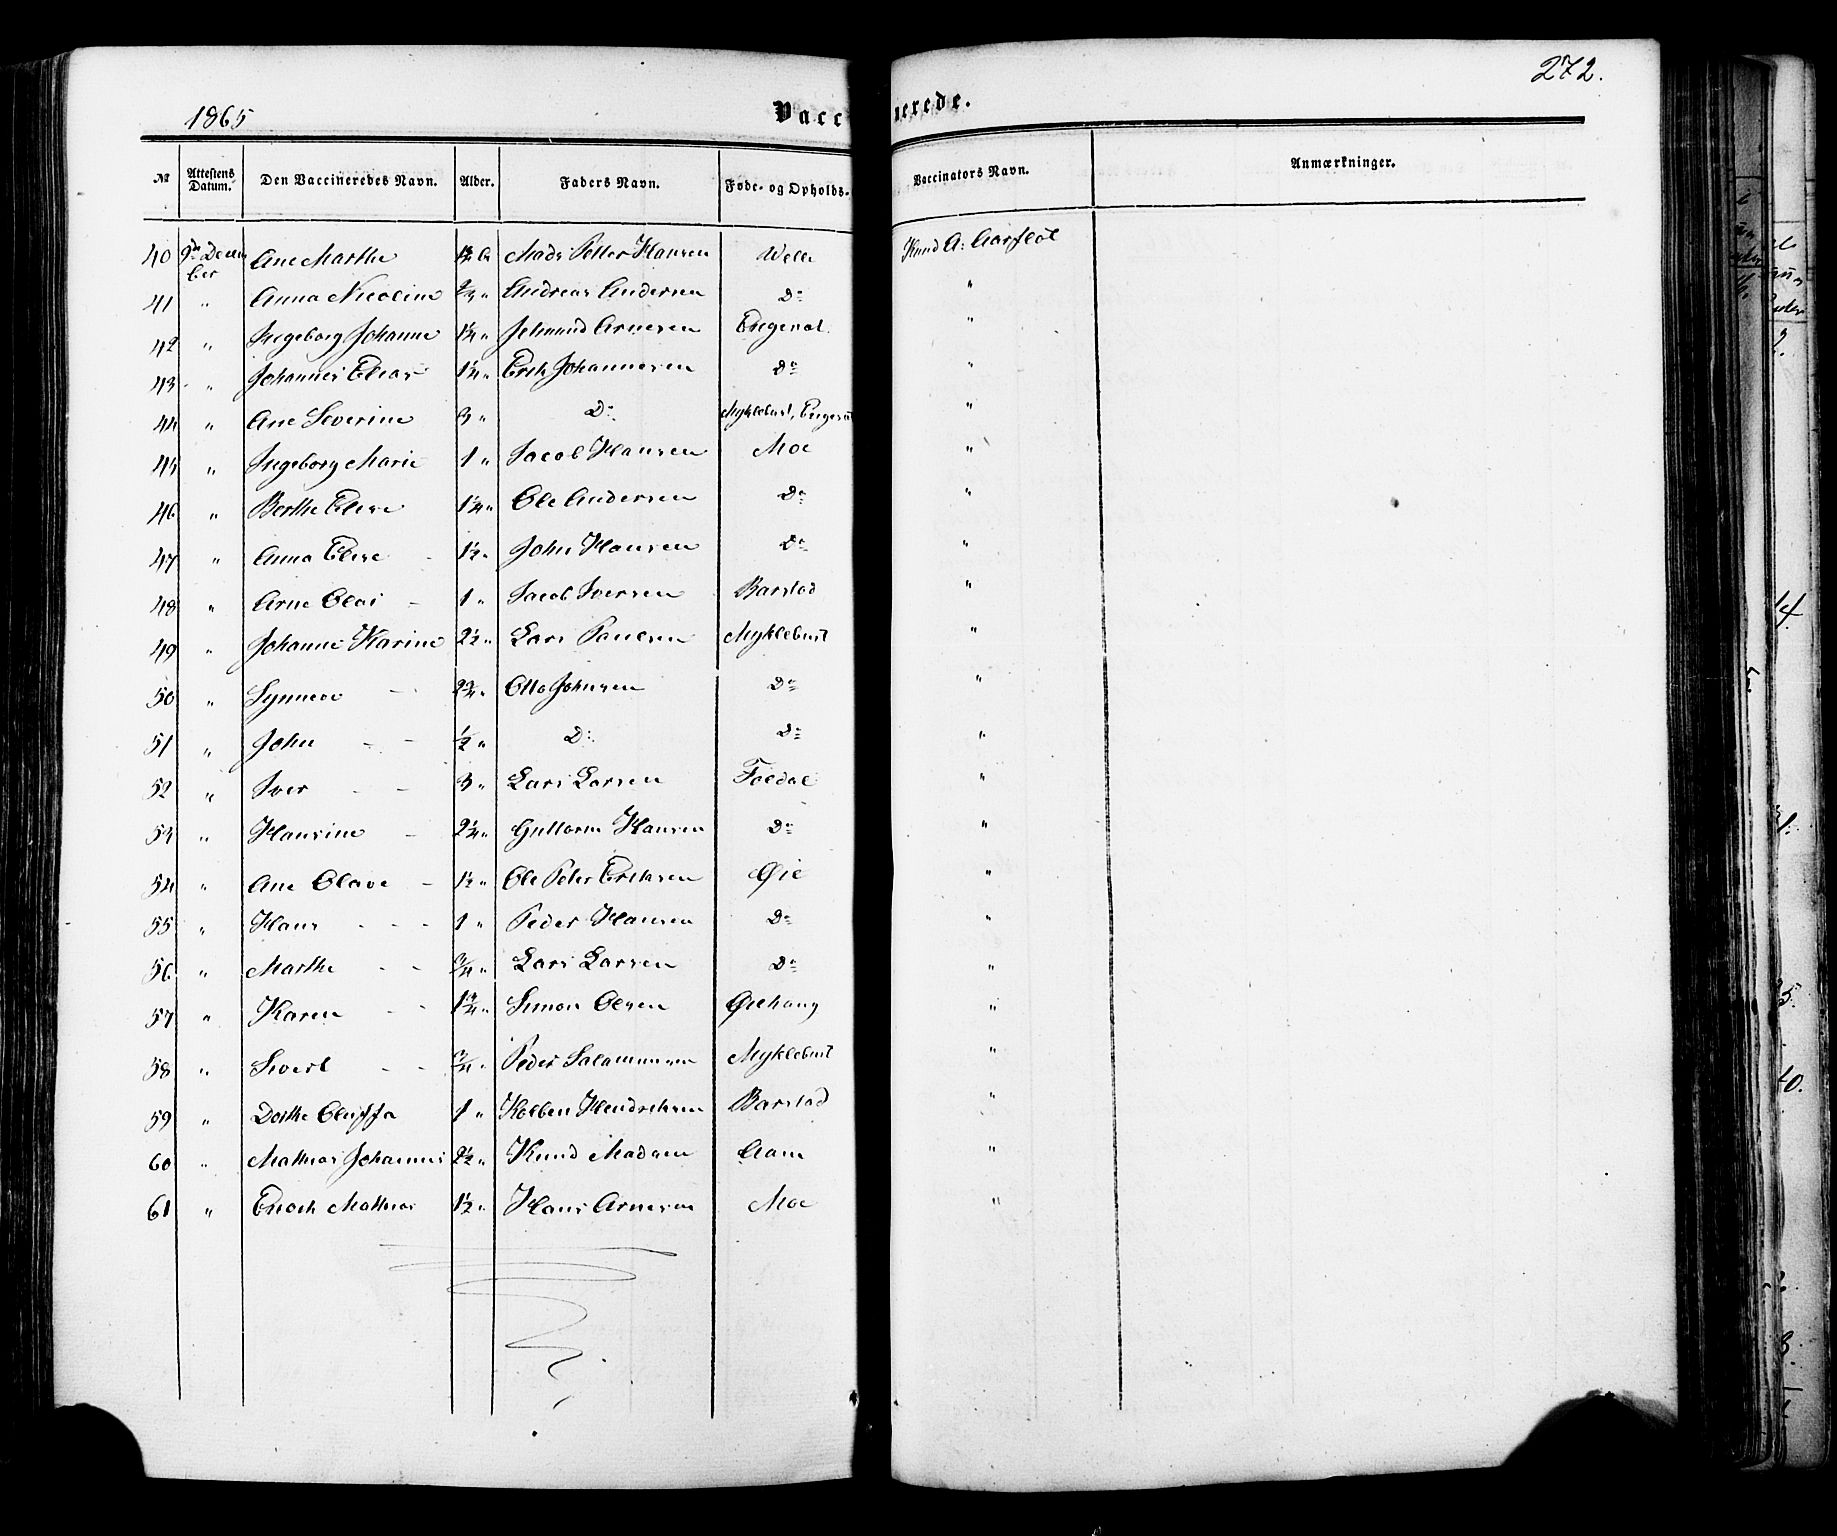 272.
1865 Vaccinerede.
№ Attestens Datum. Den Vaccineredes Navn. Alder. Faders Navn. Føde- og Opholds- Vaccinators Navn. Anmærkninger.
40 9de Decem ber Ane Marthe Mads Petter Hansen Welle Knud A: Aarflot
41 " Anna Nicoline Andreas Andersen Do "
42 " Ingeborg Johanne 1¼ " Jetmund Arnesen Engeset "
43 " Johannes Elias 1¼ " Erik Johannesen Do "
44 " Ane Severine 3 " Do Myklebust, Engeset "
45 " Ingeborg Marie 1 " Jacob Hansen Moe "
46 " Berthe Elise 1¼ " Ole Andersen Do "
47 " Anna Elise 1½ " John Hansen Do "
48 " Arne Olai 1 " Jacob Iversen Barstad "
49 " Johanne Karine 2½ " Lars Paulsen Myklebust "
50 " Synneve 2¾ " Otto Johnsen Do "
51 " John ½ " Do Do "
52 " Iver 3 " Lars Larsen Folldal "
53 " Hansine 2¼ " Guttorm Hansen Do "
54 " Ane Olave 1½ " Ole Peter Eriksen Øie "
55 " Hans 1 " Peder Hansen Do "
56 " Marthe ¾ " Lars Larsen Do "
57 " Karen 1¾ " Simon Olsen Øiehaug "
58 " Sivert ¾ " Peder Salamonsen Myklebust "
59 " Dorthe Oluffa 1 " Kolben Hendriksen Barstad "
60 " Mathias Johannes 2½ " Knud Madsen Aam "
61 " Enoch Mathias 1½ " Hans Arnesen Moe "